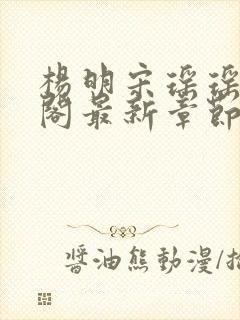 楊明宋瑤瑤
閣最新章節
醬油熊動漫/